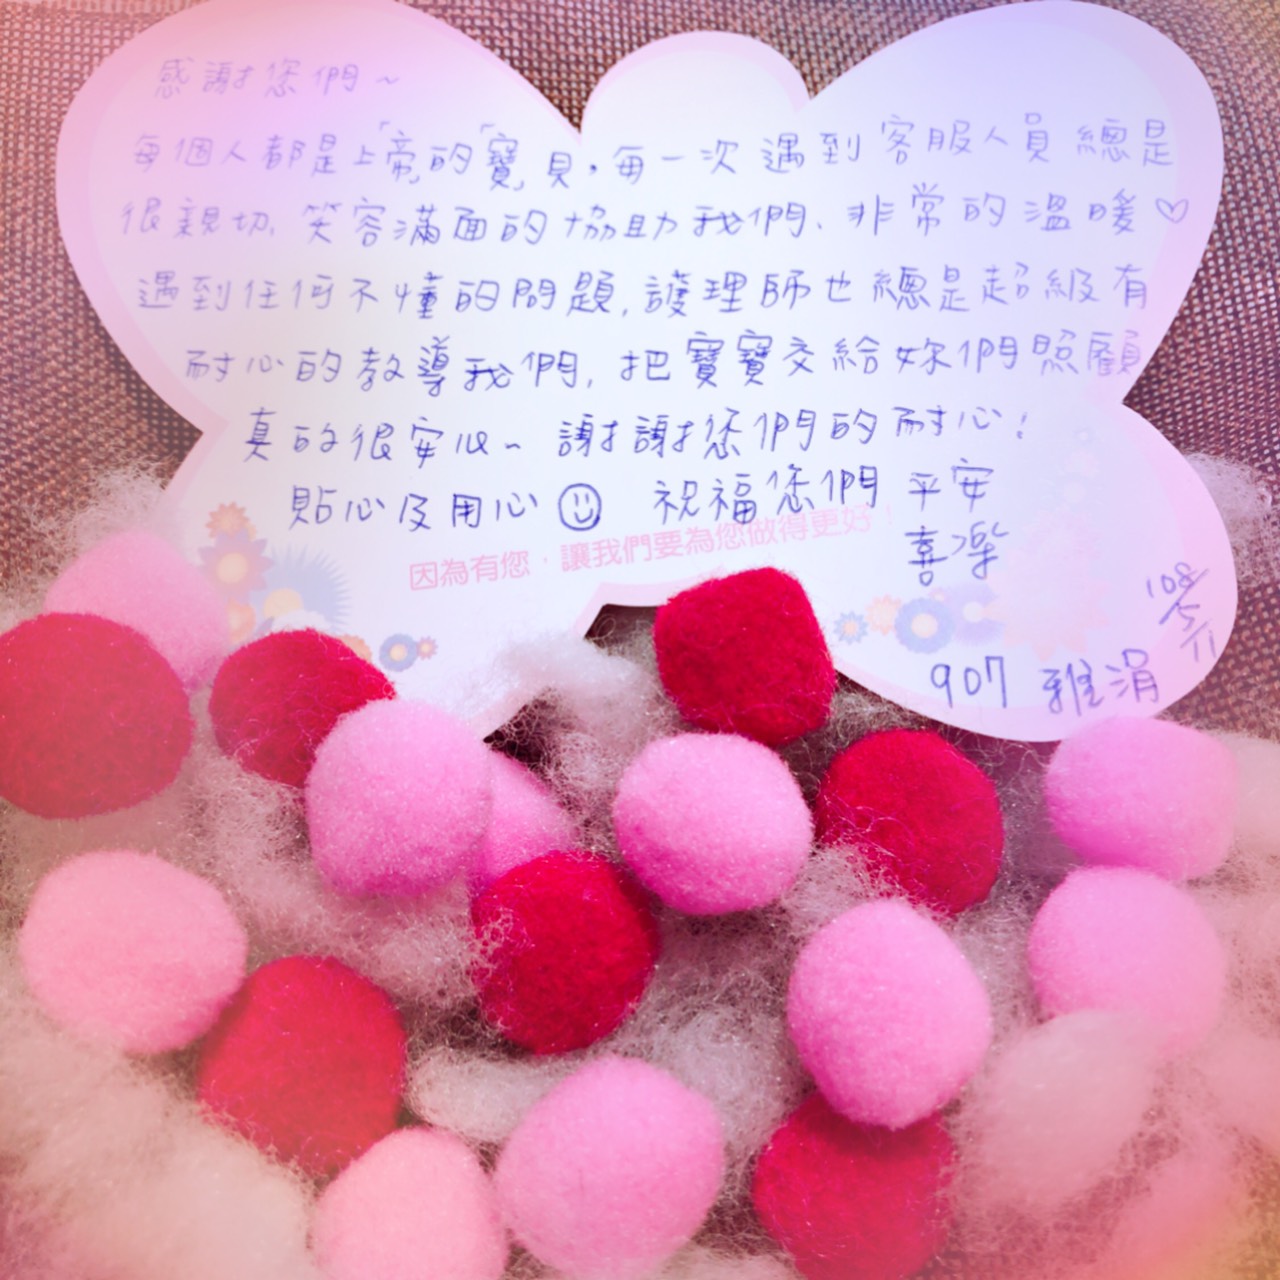 感謝您們~
每個人都是「上帝」的「寶」貝,每一次遇到客服人員總是
很親切,笑容滿面的協助我們、非常的溫暖♡
遇到任何不懂的問題,護理師也總是超級有
耐心的教導我們,把寶寶交給妳們照顧
真的很安心~ 謝謝您們的耐心!
貼心及用心☺ 祝福您們 平安
喜樂
因為有您,讓我們要為您做得更好!
108/5/11
907 雅涓